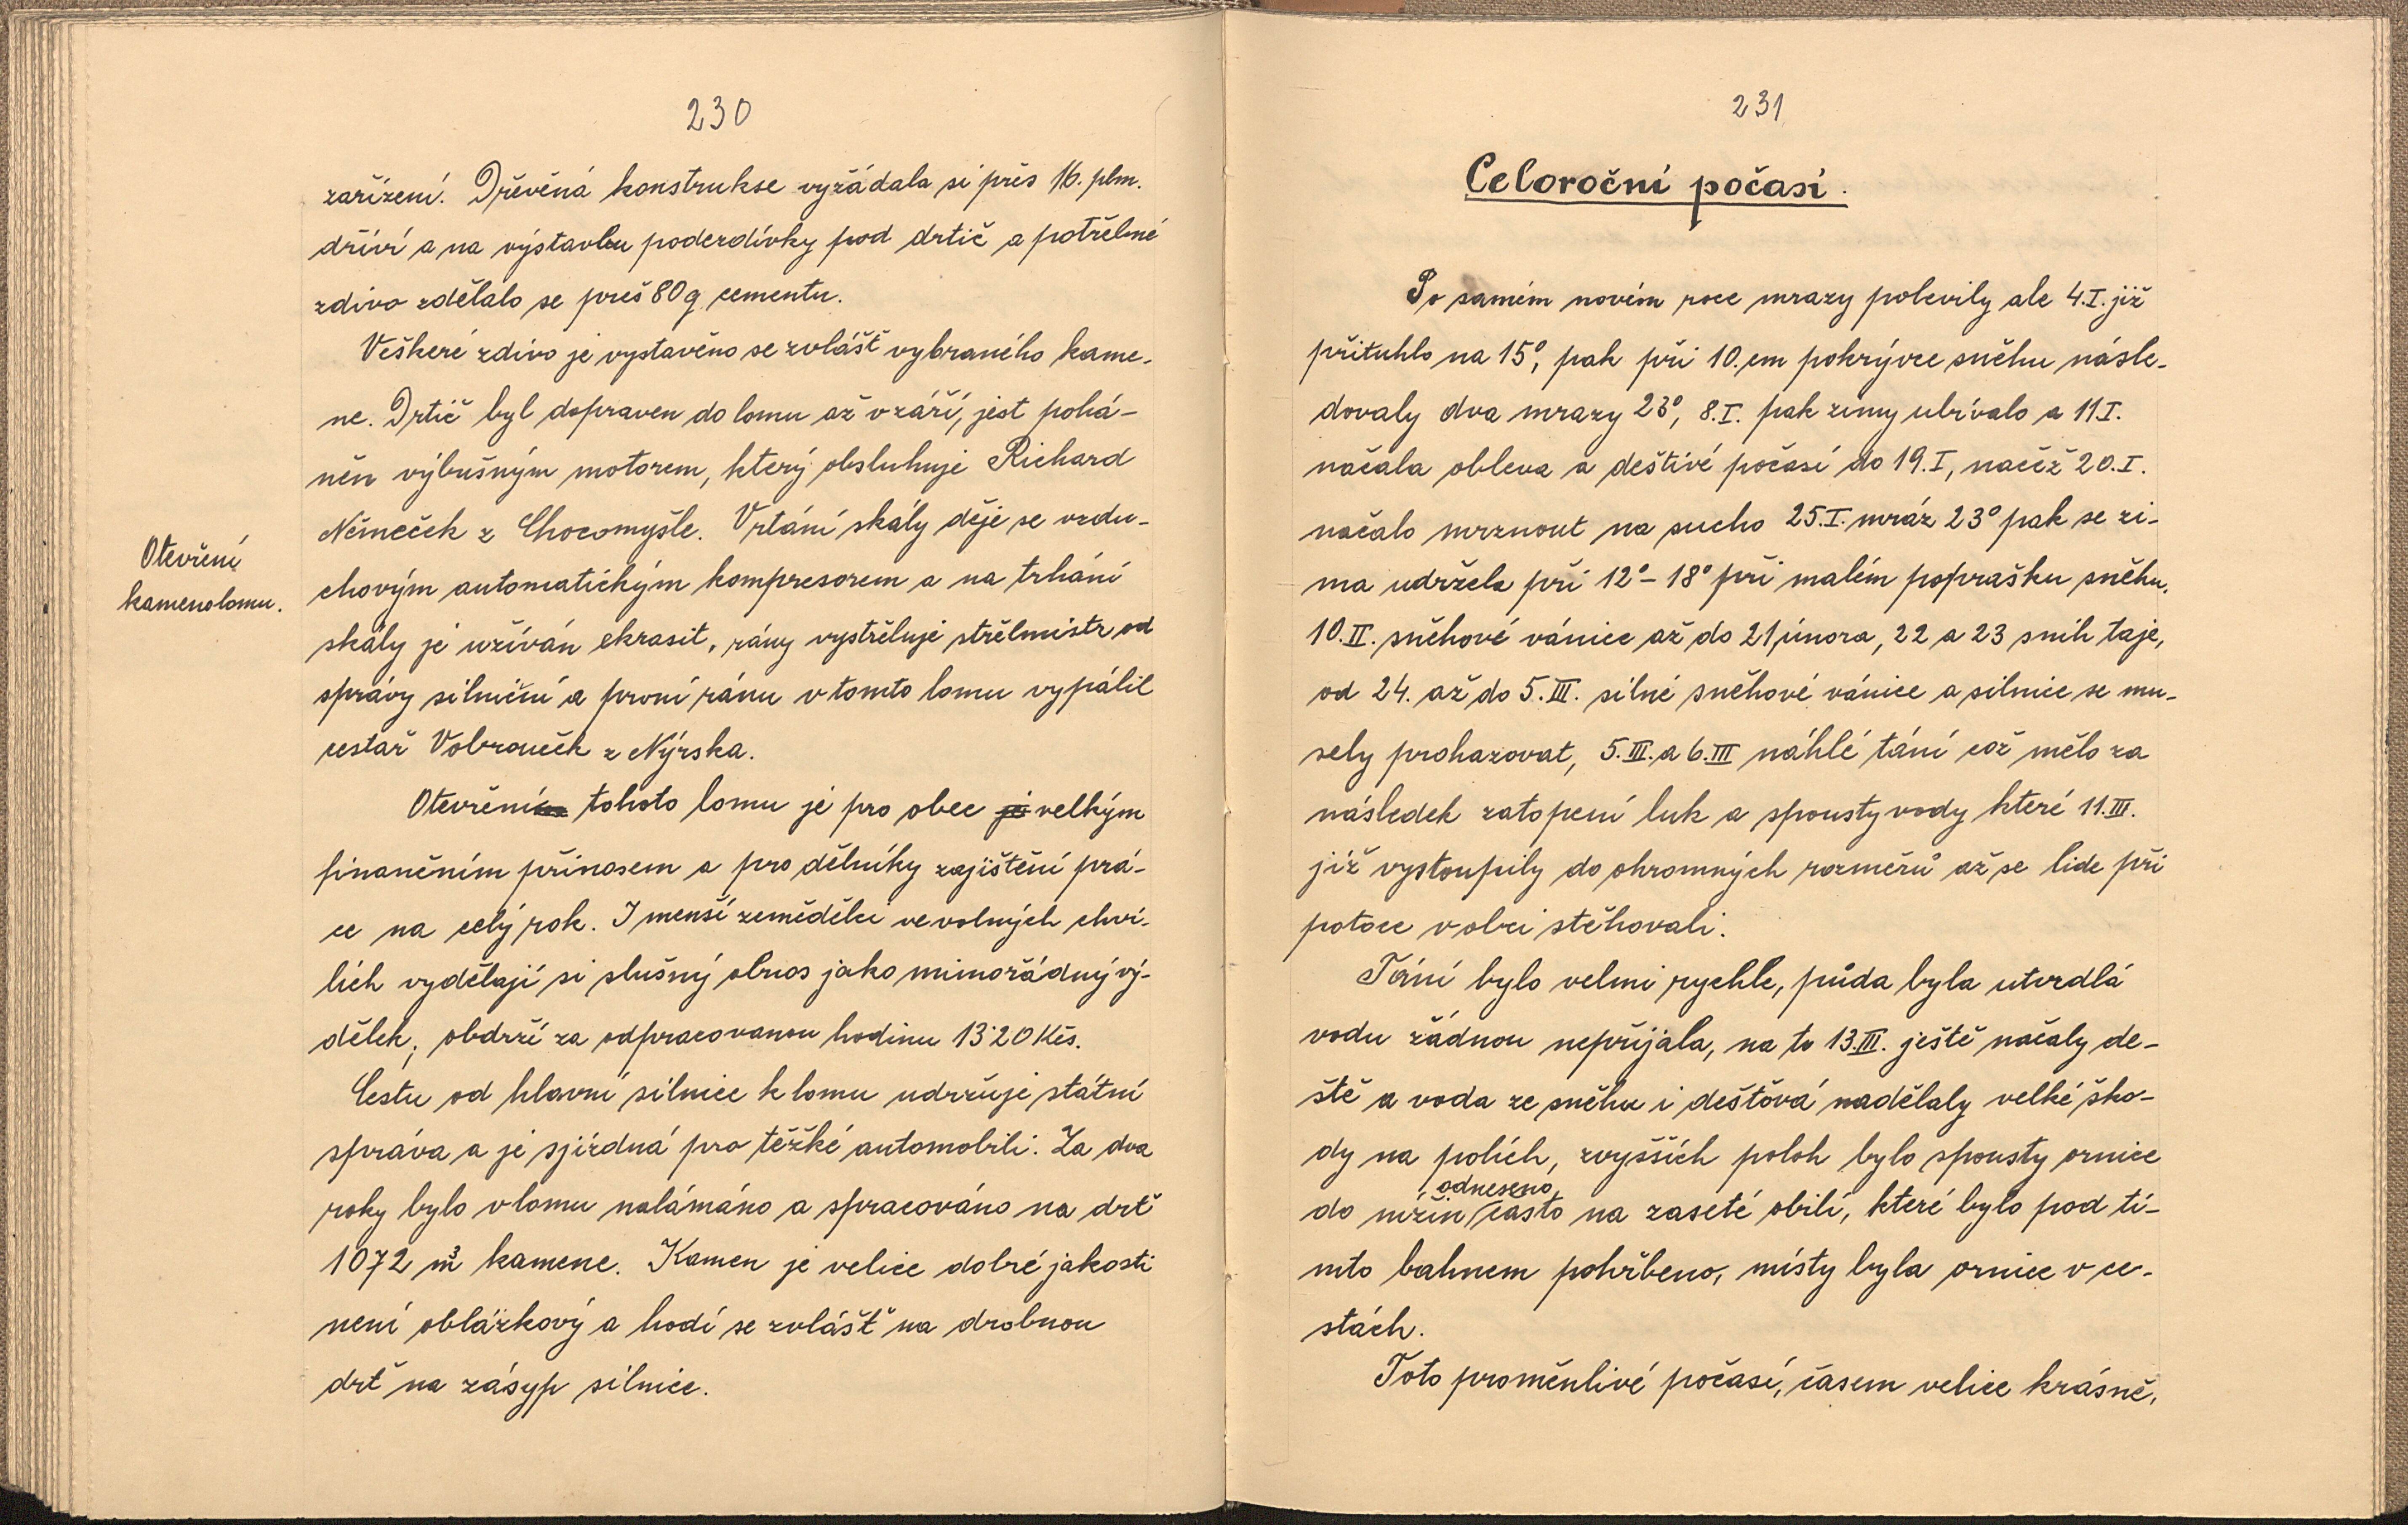 230
zařízení. Dřevěná konstrukse vyžádala si přes 16. plm.
dříví a na výstavbu podezdívky pod drtič a potřebné
zdivo zdělalo se přeš 80 q cementu.
Veškeré zdivo je vystavěno se zvlášť vybraného kame-
ne. Drtič byl dopraven do lomu až v září, jest pohá-
něn výbušným motorem, který obsluhuje Richard
Němeček z Chocomyšle. Vrtání skály děje se vzdu-
chovým automatickým kompresorem a na trhání
skály je užíván ekrasit, rány vystřeluje střelmistr od
správy silniční a první ránu v tomto lomu vypálil
cestař Vobrouček z Nýrska.
Otevření
kamenolomu.
Otevření tohoto lomu je pro obec je velkým
finančním přínosem a pro dělníky zajištění prá-
ce na celý rok. I menší zemědělci ve volných chví-
lích vydělají si slušný obnos jako mimořádný vý-
dělek, obdrží za odpracovanou hodinu 13·20 Kčs.
Cestu od hlavní silnice k lomu udržuje státní
správa a je sjízdná pro těžké automobili. Za dva
roky bylo v lomu nalámáno a spracováno na drť
1072 m³ kamene. Kamen je velice dobré jakosti
není oblázkový a hodí se zvlášť na drobnou
drť na zásyp silnice.
231
Celoroční počasí.
Po samém novém roce mrazy polevily ale 4.I. již
přituhlo na 15°, pak při 10.cm pokrývce sněhu násle-
dovaly dva mrazy 23°, 8.I. pak zimy ubývalo a 11 I.
načala obleva a deštivé počasí do 19.I, načež 20.I.
načalo mrznout na sucho 25.I. mráz 23° pak se zi-
ma udržela při 12°-18° při malém poprašku sněhu.
10.II. sněhové vánice až do 21 února, 22 a 23 sníh taje,
od 24. až do 5.III. silné sněhové vánice a silnice se mu-
sely prohazovat, 5.III. a 6.III náhlé tání což mělo za
následek zatopení luk a spousty vody které 11.III.
již vystoupily do ohromných rozměrů až se lide při
potoce v obci stěhovali.
Tání bylo velmi rychle, půda byla utvrdlá
vodu žádnou nepřijala, na to 13.III. ještě načaly de-
ště a voda ze sněhu i deštová nadělaly velké ško-
dy na polích, zvyšších poloh bylo spousty ornice
odneseno
do nížin často na zaseté obilí, které bylo pod tí-
mto bahnem pohřbeno, místy byla ornice v ce-
stách.
Toto proměnlivé počasí, časem velice krásně,